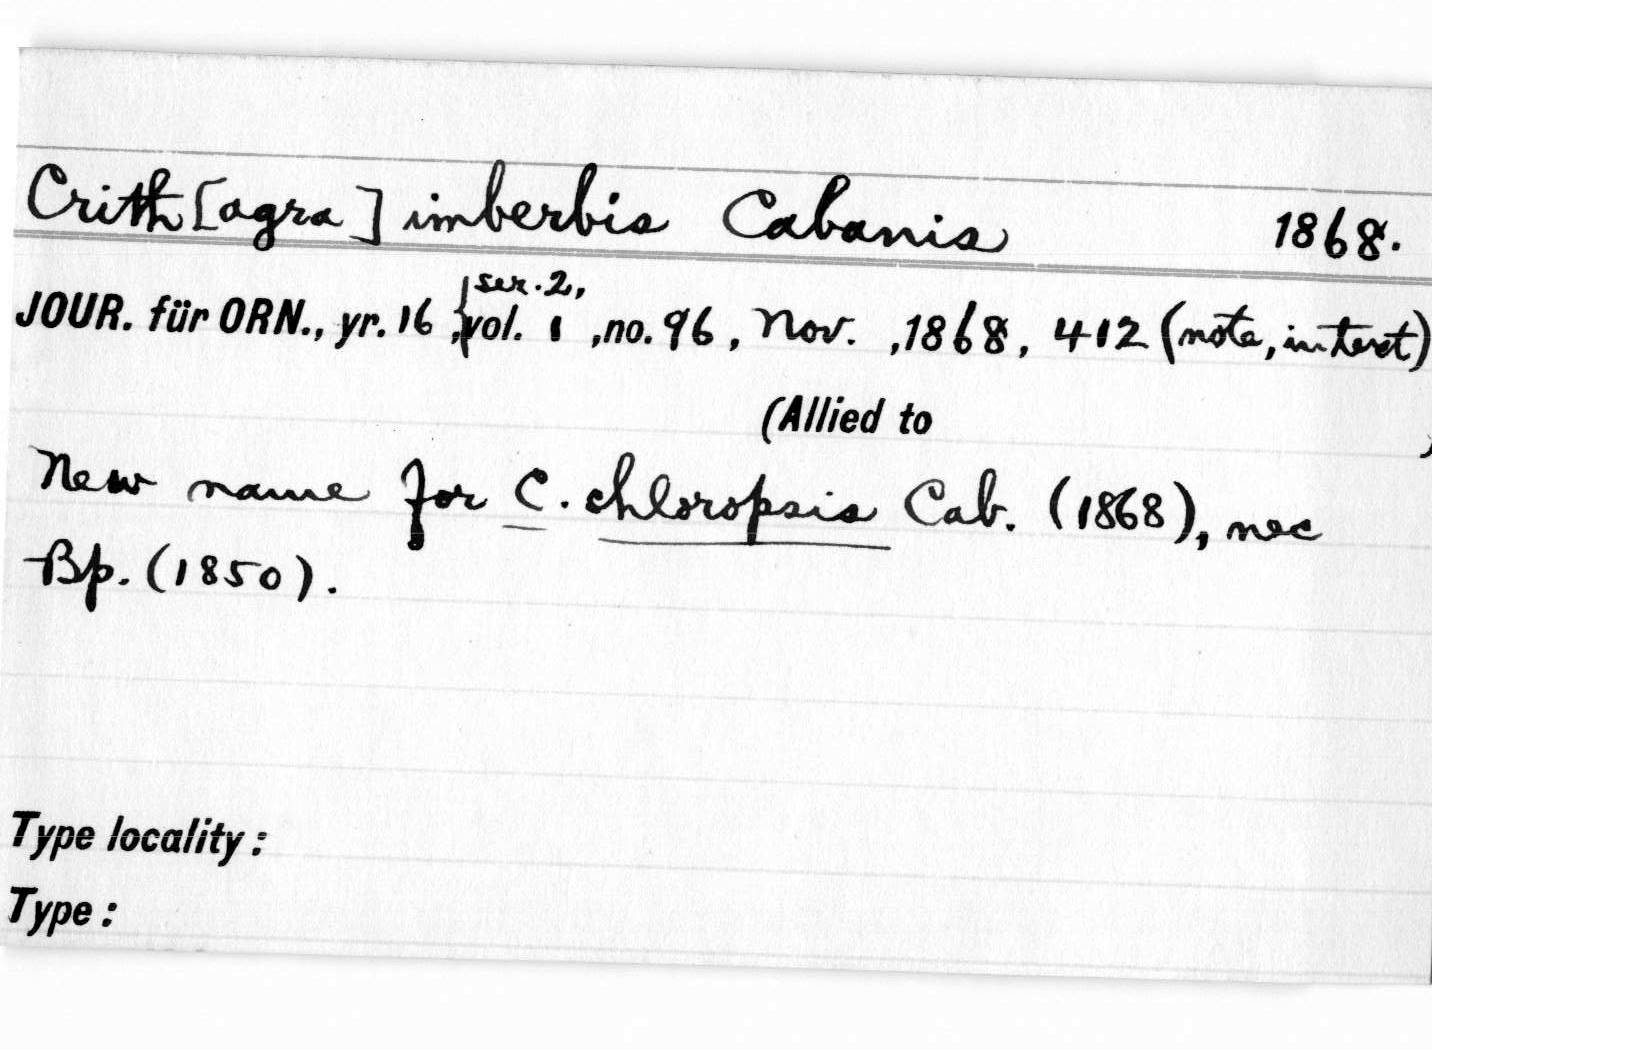 Crith[agra] imberbis Cabanis 1868.
JOUR. für ORN., yr. 16, {ser. 2, vol. 1, no. 96, Nov., 1868, 412 (note, in text)
(Allied to )
New name for C. chloropsis Cab. (1868), nec
Bp. (1850).
Type locality:
Type: